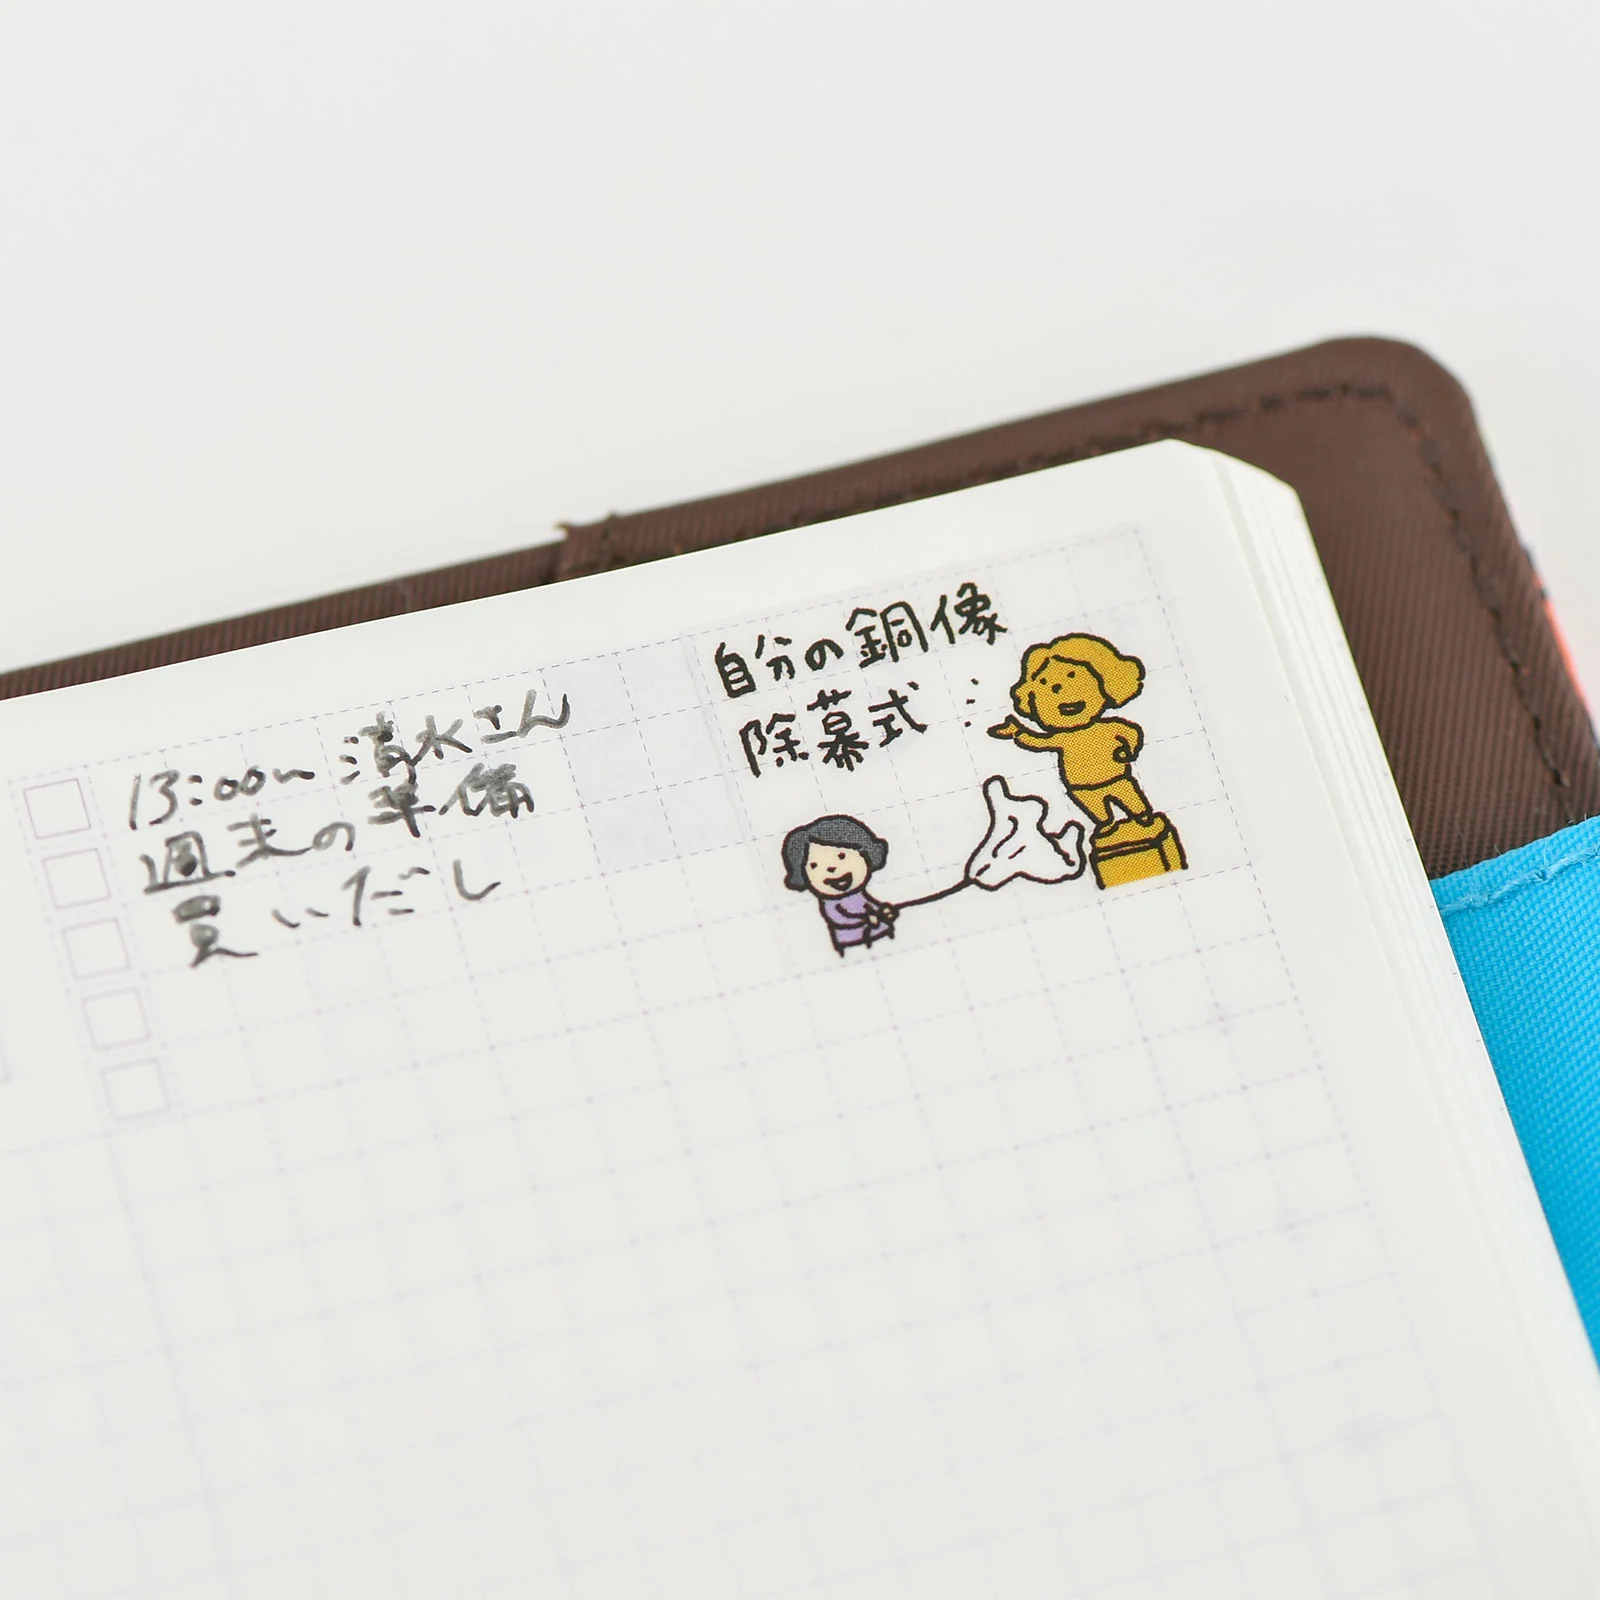 13:00〜清水さん
週末の準備
買いだし
自分の銅像
除幕式